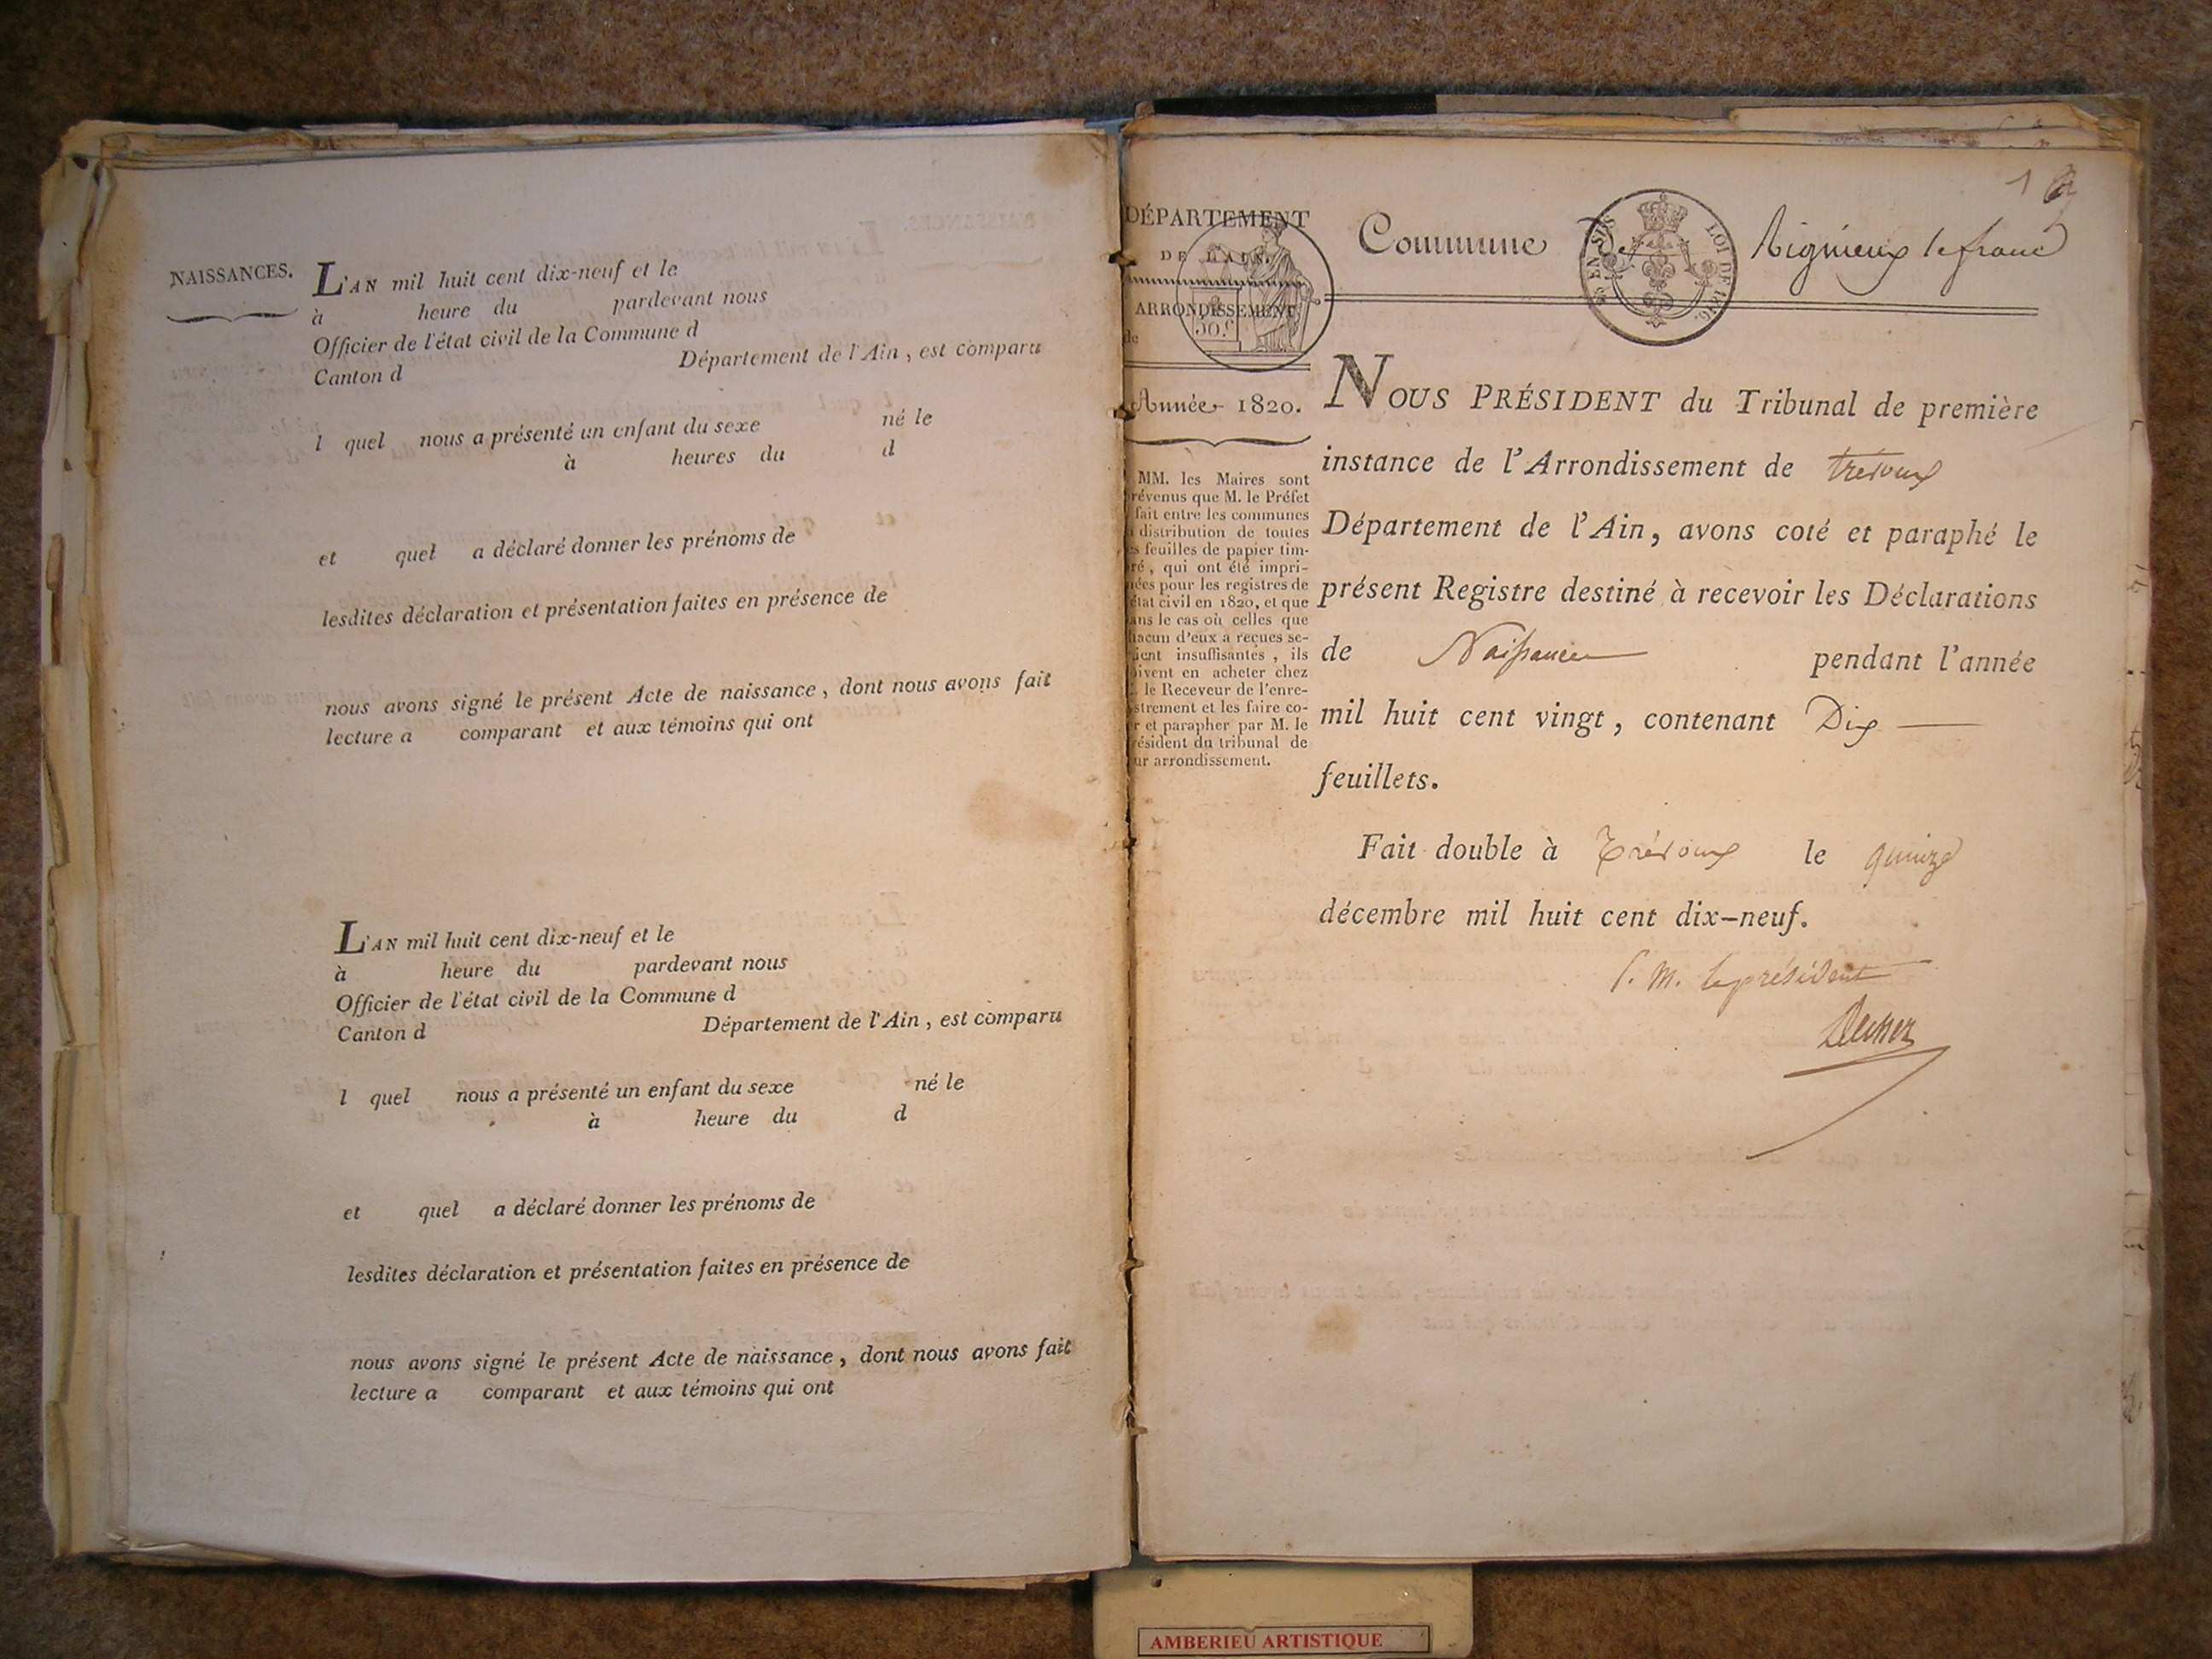 NAISSANCES.
L'AN mil huit cent dix-neuf et le
à heure du pardevant nous
Officier de l'état civil de la Commune d
Canton d Département de l'Ain, est comparu
l quel nous a présenté un enfant du sexe né le
à heures du d
et quel a déclaré donner les prénoms de
lesdites déclaration et présentation faites en présence de
nous avons signé le présent Acte de naissance, dont nous avons fait
lecture a comparant et aux témoins qui ont
L'AN mil huit cent dix-neuf et le
à heure du pardevant nous
Officier de l'état civil de la Commune d
Canton d Département de l'Ain, est comparu
l quel nous a présenté un enfant du sexe né le
à heure du d
et quel a déclaré donner les prénoms de
lesdites déclaration et présentation faites en présence de
nous avons signé le présent Acte de naissance, dont nous avons fait
lecture a comparant et aux témoins qui ont
1
DÉPARTEMENT
DE L'AIN.
ARRONDISSEMENT
de
50.c
Année 1820.
MM. les Maires sont
révenus que M. le Préfet
fait entre les communes
distribution de toutes
s feuilles de papier tim-
ré, qui ont été impri-
ées pour les registres de
état civil en 1820, et que
ans le cas où celles que
hacun d'eux a reçues se-
ient insuffisantes, ils
oivent en acheter chez
le Receveur de l'enre-
strement et les faire co-
r et parapher par M. le
résident du tribunal de
ur arrondissement.
Commune de Rignieux le franc
EN SUS LOI DE 1816.
NOUS PRÉSIDENT du Tribunal de première
instance de l'Arrondissement de trévoux
Département de l'Ain, avons coté et paraphé le
présent Registre destiné à recevoir les Déclarations
de Naissances pendant l'année
mil huit cent vingt, contenant Dix
feuillets.
Fait double à Trévoux le quinze
décembre mil huit cent dix-neuf.
P. M. le président
AMBERIEU ARTISTIQUE